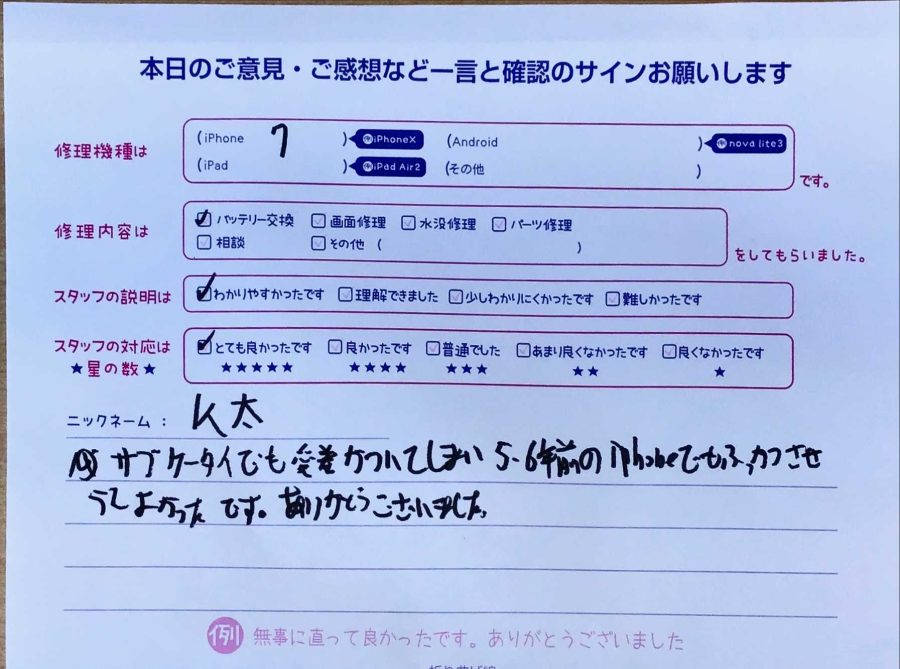 本日のご意見・ご感想など一言と確認のサインお願いします
修理機種は
(iPhone 7 ) 例iPhoneX (Android ) 例nova lite3
(iPad ) 例iPad Air2 (その他 ) です。
修理内容は
バッテリー交換 画面修理 水没修理 パーツ修理
相談 その他 ( ) をしてもらいました。
スタッフの説明は わかりやすかったです 理解できました 少しわかりにくかったです 難しかったです
スタッフの対応は とても良かったです 良かったです 普通でした あまり良くなかったです 良くなかったです
★星の数★ ★★★★★ ★★★★ ★★★ ★★ ★
ニックネーム： K太
サブケータイでも愛着がついてしまい 5-6年前のiPhoneでもふっかつさせ
てよかったです。ありがとうございました。
例 無事に直って良かったです。ありがとうございました